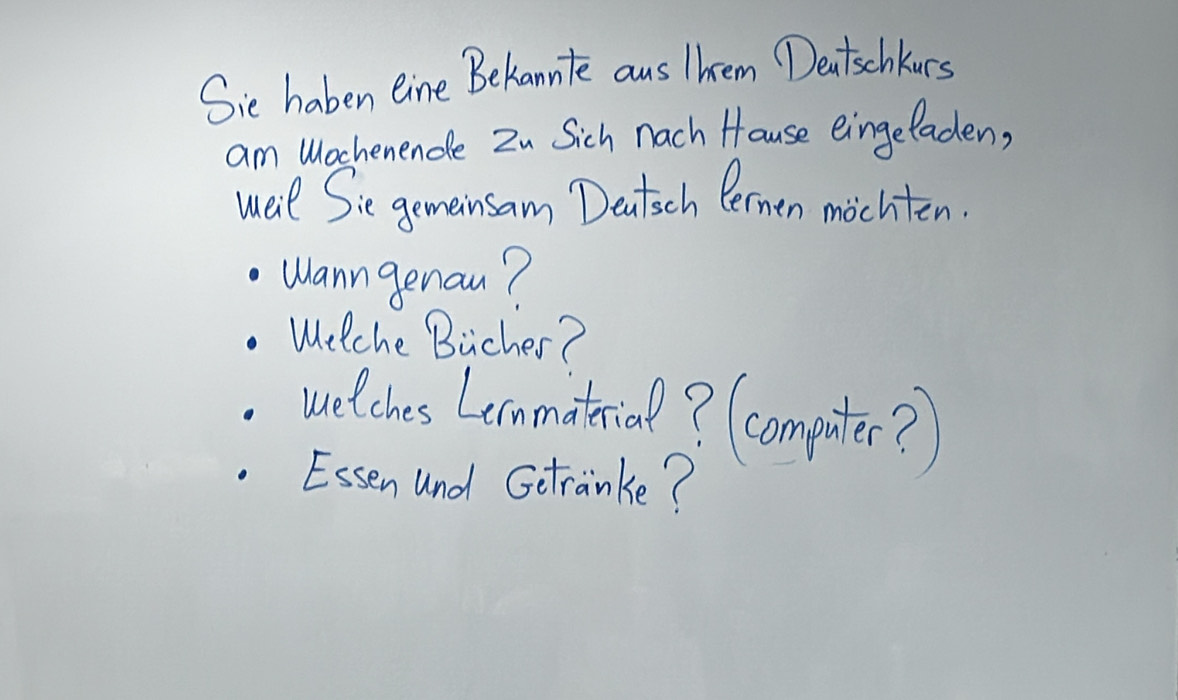 Sie haben eine Bekannte aus Ihrem Deutschkurs
am Wochenende zu Sich nach Hause eingeladen,
weil Sie gemeinsam Deutsch lernen möchten.
• Wann genau?
• Welche Bücher?
• welches Lernmaterial? (computer?)
• Essen und Getränke?